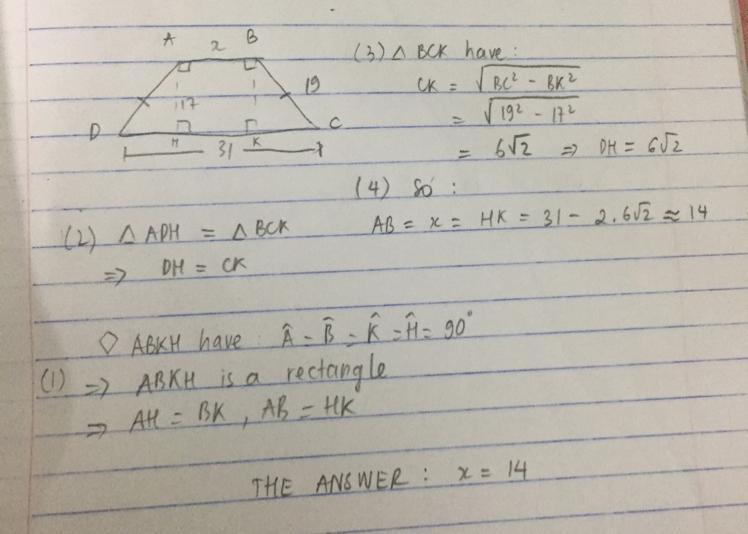 A x B
19
17
D H K C
31
(3) △ BCK have :
CK = √BC² - BK²
= √19² - 17²
= 6√2 ⇒ DH = 6√2
(4) So :
AB = x = HK = 31 - 2.6√2 ≈ 14
(2) △ ADH = △ BCK
⇒ DH = CK
◇ ABKH have : Â = B̂ = K̂ = Ĥ = 90°
(1) ⇒ ABKH is a rectangle
⇒ AH = BK , AB = HK
THE ANSWER : x = 14